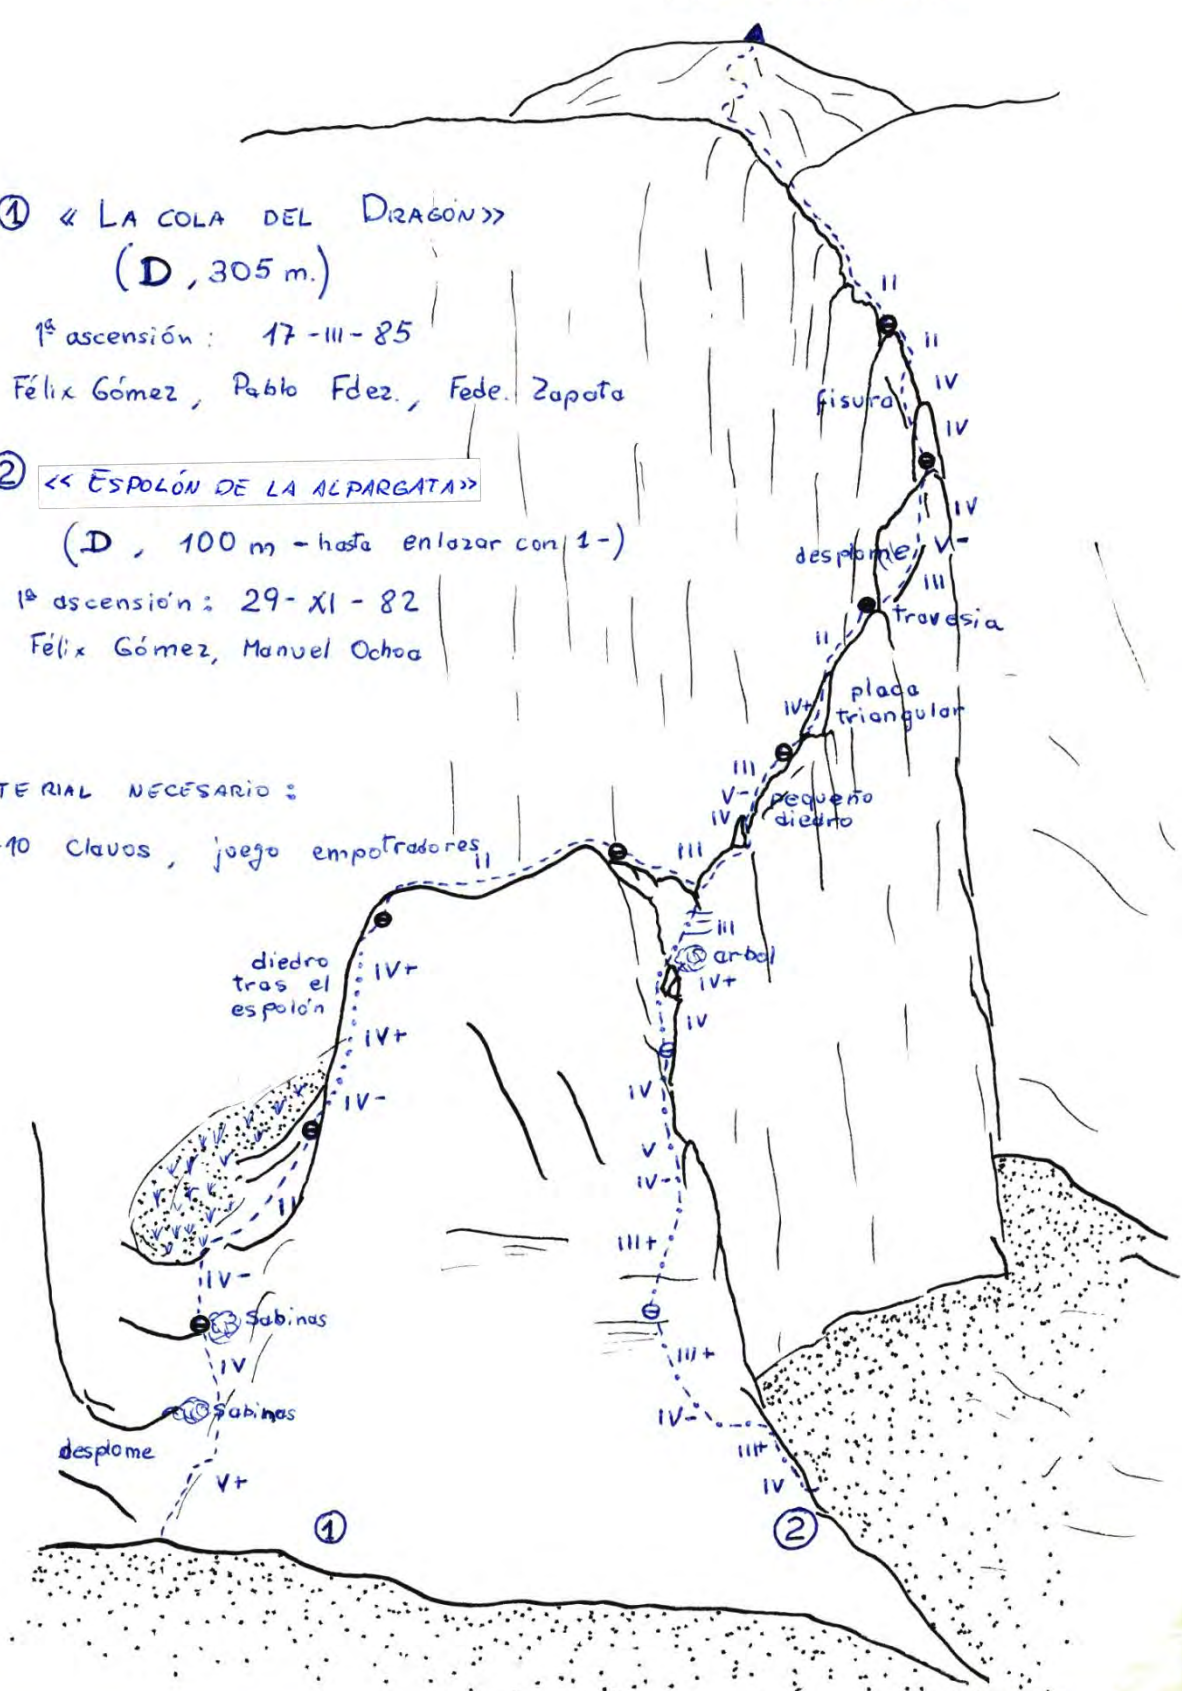 ① « LA COLA DEL DRAGÓN»
(D, 305 m.)
1ª ascensión: 17-III-85
Félix Gómez, Pablo Fdez., Fede. Zapata
② << ESPOLÓN DE LA ALPARGATA>>
(D, 100 m - hasta enlazar con 1-)
1ª ascensión: 29-XI-82
Félix Gómez, Manuel Ochoa
TERIAL NECESARIO:
10 clavos, juego empotradores
II
II
IV
fisura
IV
IV
desplome V-
III
travesía
II
placa
IV+ triangular
III
V- pequeño
IV diedro
II
III
III
arbol
diedro
tras el
espolón
IV+
IV+
IV
IV+
IV-
IV
V
IV-
II
III+
IV-
Sabinas
III+
IV
Sabinas
IV-
desplome
III+
V+
IV
①
②